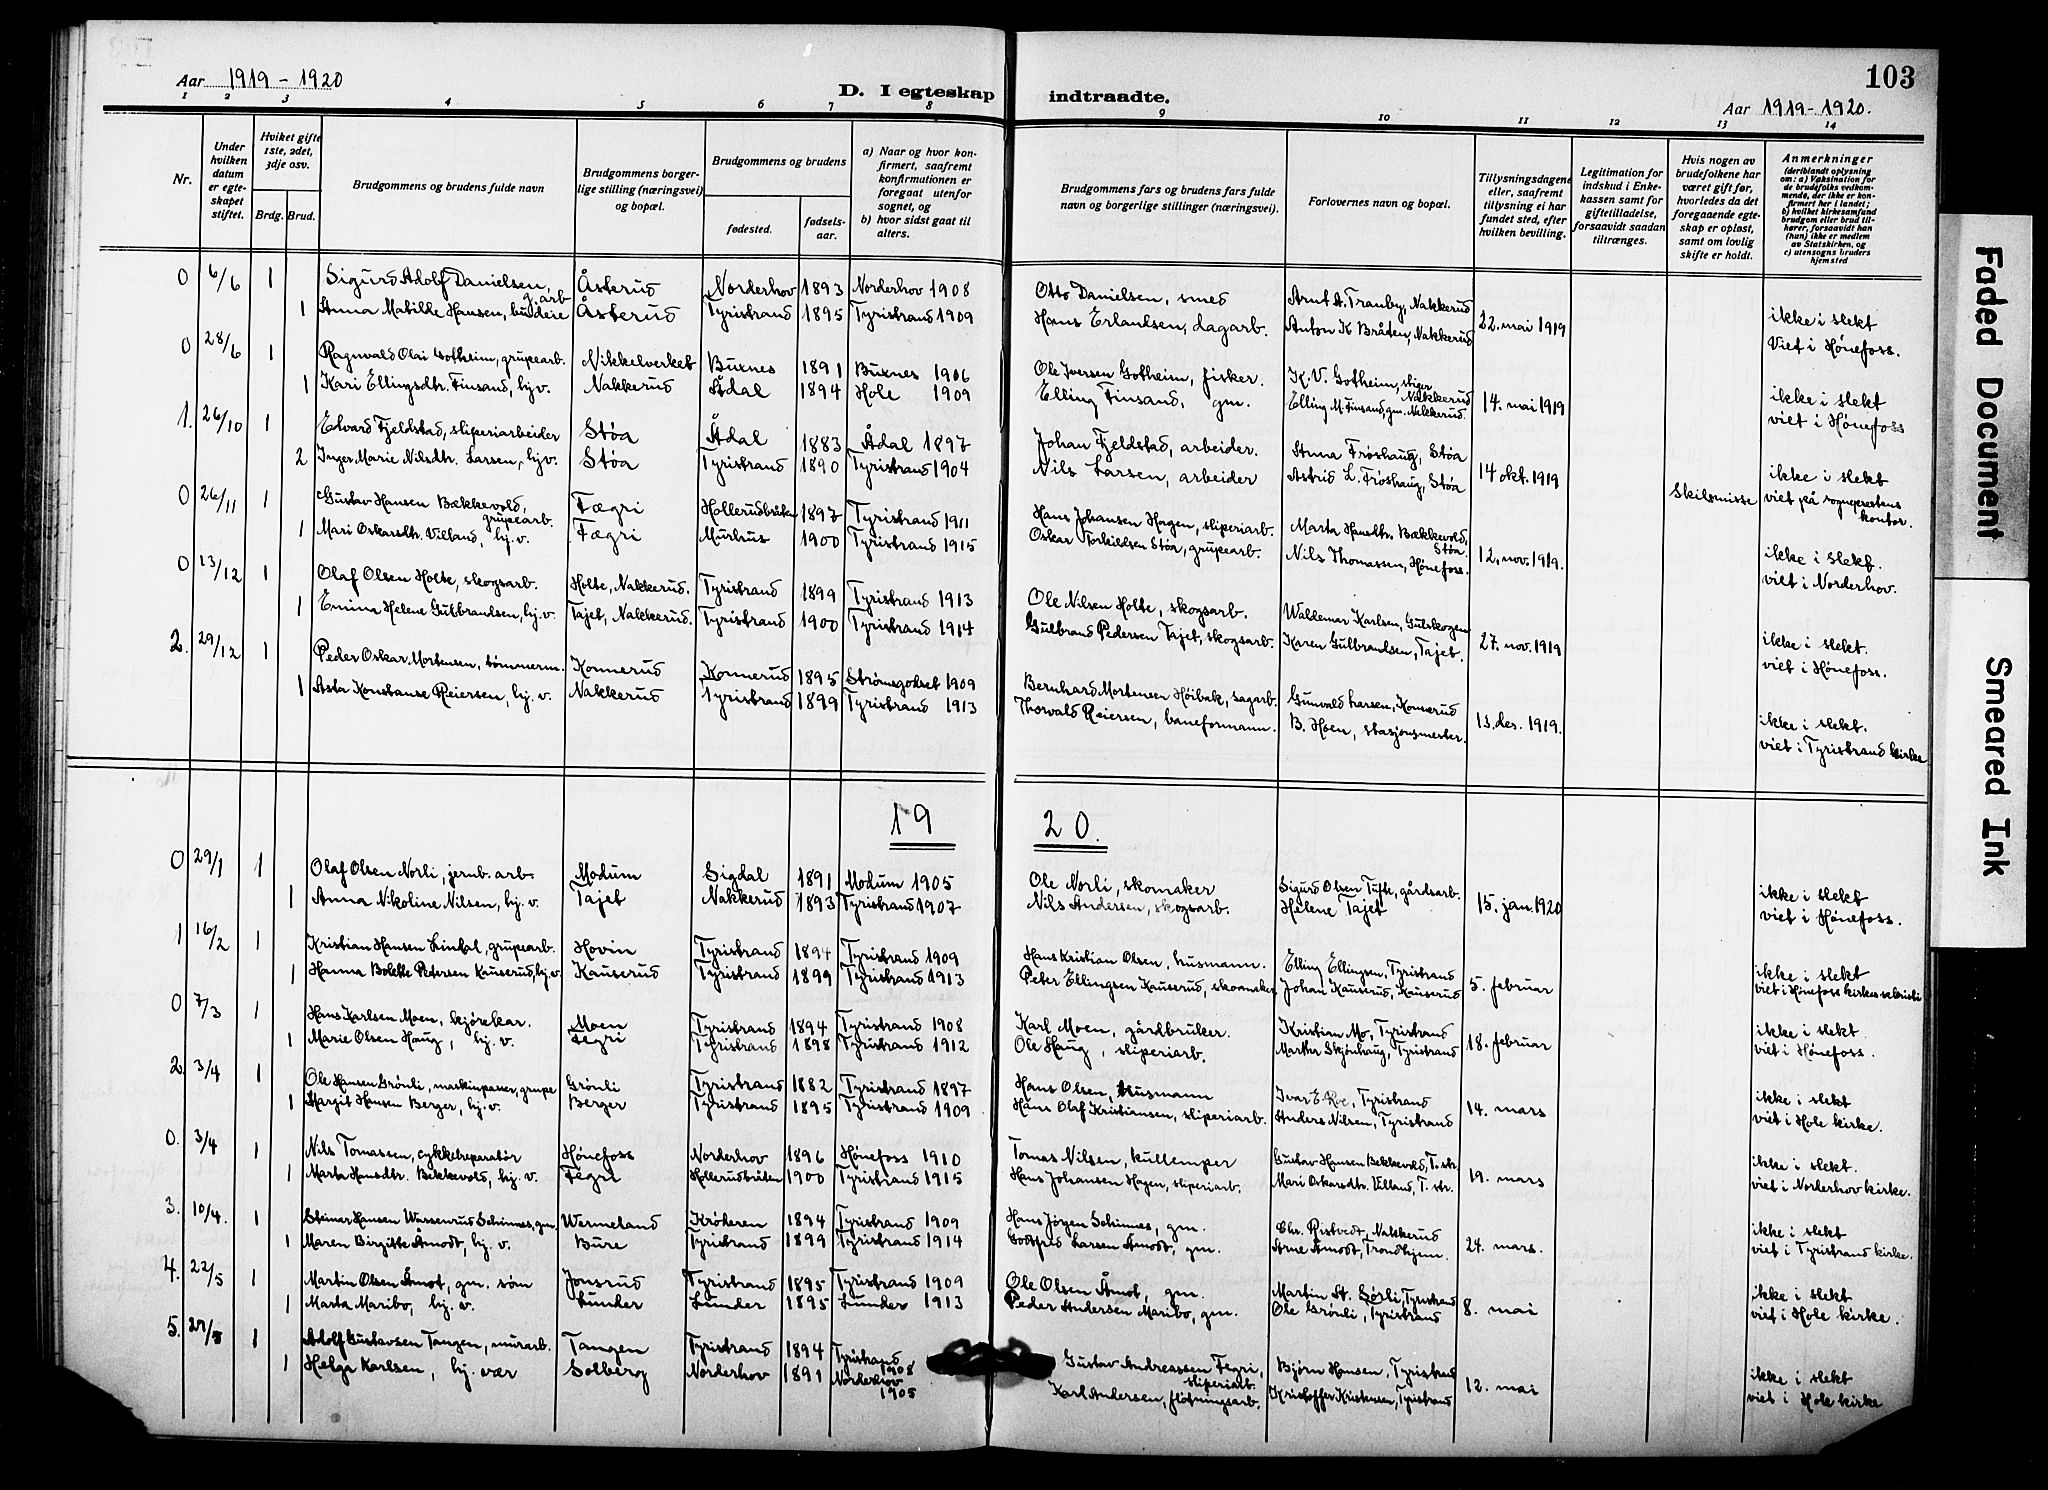 Aar 1919 - 1920
D. I egteskap indtraadte.
103
Aar 1919-1920.
1 2 3 4 5 6 7 8 9 10 11 12 13 14
Nr.
Under hvilken datum er egteskapet stiftet.
Hviket gifte 1ste, 2det, 3dje osv.
Brdg. Brud.
Brudgommens og brudens fulde navn
Brudgommens borgerlige stilling (næringsvei) og bopæl.
Brudgommens og brudens
fødested.
fødselsaar.
a) Naar og hvor konfirmert, saafremt konfirmationen er foregaat utenfor sognet, og
b) hvor sidst gaat til alters.
Brudgommens fars og brudens fars fulde navn og borgerlige stillinger (næringsvei).
Forlovernes navn og bopæl.
Tillysningsdagene eller, saafremt tillysning ei har fundet sted, efter hvilken bevilling.
Legitimation for indskud i Enkekassen samt for giftetilladelse, forsaavidt saadan tiltrænges.
Hvis nogen av brudefolkene har været gift før, hvorledes da det foregaaende egteskap er opløst, samt om lovlig skifte er holdt.
Anmerkninger (deriblandt oplysning om: a) Vaksination for de brudefolks vedkommende, der ikke er konfirmert her i landet; b) hvilket kirkesamfund brudgom eller brud tilhører, forsaavidt han (hun) ikke er medlem av Statskirken, og c) utensogns bruders hjemsted
0 6/6 1 Sigurd Adolf Danielsen, gr.arb Åsterud Norderhov 1893 Norderhov 1908 Otto Danielsen, smed Arnt A. Tranby, Nakkerud 22. mai 1919 ikke i slekt
1 Anna Matilde Hansen, budeie Åsterud Tyristrand 1895 Tyristrand 1909 Hans Erlandsen, dagarb. Anton K Bråten, Nakkerud Viet i Hønefoss.
0 28/6 1 Ragnvald Olai Gotheim, grupearb. Nikkelverket Buxnes 1891 Buxnes 1906 Ole Iversen Gotheim, fisker. K. V. Gotheim, stiger Nakkerud 14. mai 1919 ikke i slekt
1 Kari Ellingsdtr. Finsand, hj.v. Nakkerud Ådal 1894 Hole 1909 Elling Finsand, gm. Elling M. Finsand, gm. Nakkerud. viet i Hønefoss
1. 26/10 1 Edvard Fjeldstad, sliperiarbeider Støa Ådal 1883 Ådal 1897 Johan Fjeldstad, arbeider. Anna Frøshaug, Støa 14 okt. 1919 ikke i slekt
2 Inger Marie Nilsdtr. Larsen, hj.v. Støa Tyristrand 1890 Tyristrand 1904 Nils Larsen, arbeider Astrid L. Frøshaug, Støa Skilsmisse viet på sogneprestens kontor.
0 26/11 1 Gustav Hansen Bækkevold, grupearb. Fægri Hollerudbråten 1897 Tyristrand 1911 Hans Johansen Hagen, sliperiarb. Marta Hansdtr. Bækkevold, Støa. 12. nov. 1919. ikke i slekt.
1 Mari Oskarsdtr. Villand, hj.v. Fægri Murhus 1900 Tyristrand 1915 Oskar Torkildsen Støa, grupearb. Nils Thomassen, Hønefoss. viet i Norderhov.
0 13/12 1 Olaf Olsen Holte, skogsarb. Holte, Nakkerud. Tyristrand 1899 Tyristrand 1913 Ole Nilsen Holte, skogsarb. Waldemar Karlsen, Gulskogen 27. nov. 1919 ikke i slekt.
1 Emma Helene Gulbrandsen, hj.v. Tajet, Nakkerud. Tyristrand 1900 Tyristrand 1914 Gulbrand Pedersen Tajet, skogsarb. Karen Gulbrandsen, Tajet. viet i Hønefoss.
2. 29/12 1 Peder Oskar Mortensen, tømmerm. Konnerud Konnerud 1895 Strømsgodset 1909 Bernhard Mortensen Høibak, sagarb. Gunvald Larsen, Konnerud 13. des. 1919. ikke i slekt.
1 Asta Konstanse Reiersen, hj.v. Nakkerud Tyristrand 1899 Tyristrand 1913 Thorvald Reiersen, baneformann. B. Hoen, stasjonsmester. viet i Tyristrand kirke
1920.
0 29/1 1 Olaf Olsen Norli, jernb. arb. Modum Sigdal 1891 Modum 1905 Ole Norli, skomaker Sigurd Olsen Tufte, gårdsarb. 15. jan. 1920 ikke i slekt
1 Anna Nikoline Nilsen, hj.v. Tajet Nakkerud 1893 Tyristrand 1907 Nils Andersen, skogsarb. Helene Tajet viet i Hønefoss.
1 16/2 1 Kristian Hansen Lindal, grupearb. Hovin Tyristrand 1894 Tyristrand 1909 Hans Kristian Olsen, husmann. Elling Ellingsen, Tyristrand 5. februar ikke i slekt
1 Hanna Bolette Petersen Kauserud, hj.v. Kauserud Tyristrand 1899 Tyristrand 1913 Peter Ellingsen Kauserud, skomaker Johan Kauserud, Kauserud viet i Hønefoss kirkes sakristi
0 7/3 1 Hans Karlsen Moen, kjørekar. Moen Tyristrand 1894 Tyristrand 1908 Karl Moen, gårdbruker. Kristian Mo, Tyristrand 18. februar ikke i slekt.
1 Marie Olsen Haug, hj.v. Fegri Tyristrand 1898 Tyristrand 1912 Ole Haug, sliperiarb. Martha Skjønhaug, Tyristrand viet i Hønefoss.
2 3/4 1 Ole Hansen Grønli, maskinpasser, grupe Grønli Tyristrand 1882 Tyristrand 1897 Hans Olsen, husmann Ivar E. Roe, Tyristrand 14. mars ikke i slekt
1 Margit Hansen Berger, hj.v. Berger Tyristrand 1895 Tyristrand 1909 Hans Olaf Kristiansen, sliperiarb. Anders Nilsen, Tyristrand viet i Hole kirke.
0. 3/4 1 Nils Tomassen, cykkelreparatør Hønefoss Norderhov 1896 Hønefoss 1910 Tomas Nilsen, kullemper Gustav Hansen Bekkevold, T.str. 19. mars ikke i slekt.
1 Marta Hansdtr. Bekkevold, hj.v. Fegri Hollerudbråten 1900 Tyristrand 1915 Hans Johansen Hagen, sliperiarb. Mari Oskarsdtr. Villand, T. str. viet i Norderhov kirke.
3. 10/4. 1 Steinar Hansen Warsenrud Schinnes, gm. Wermeland Krøderen 1894 Tyristrand 1909 Hans Jørgen Schinnes, gm. Chr. Ristvedt, Nakkerud 24. mars. ikke i slekt
1 Maren Birgitte Åmodt, hj.v. Bure Tyristrand 1899 Tyristrand 1914 Gottfred Larsen Åmodt, gm. Arne Åmodt, Trondhjem. viet i Tyristrand kirke.
4. 22/5 1 Martin Olsen Åmot, gm. søn Jonsrud Tyristrand 1895 Tyristrand 1909 Ole Olsen Åmot, gm. Martin St. Sørli, Tyristrand 8. mai ikke i slekt
1 Marta Maribo, hj.v. Lunder Lunder 1895 Lunder 1913 Peder Andersen Maribo, gm. Ole Grønli, Tyristrand viet i Hole kirke.
5. 29/5 1 Adolf Gustavsen Tangen, murarb. Tangen Tyristrand 1894 Tyristrand 1908 Gustav Andreassen Fegri, sliperiarb. Bjørn Hansen, Tyristrand 12. mai ikke i slekt
1 Helga Karlsen, hj. vær Solberg Norderhov 1891 Norderhov 1905 Karl Andersen, fløtningsarb. Kristoffer Kristensen, Tyristrand viet i Hole kirke
Faded Document
Smeared Ink